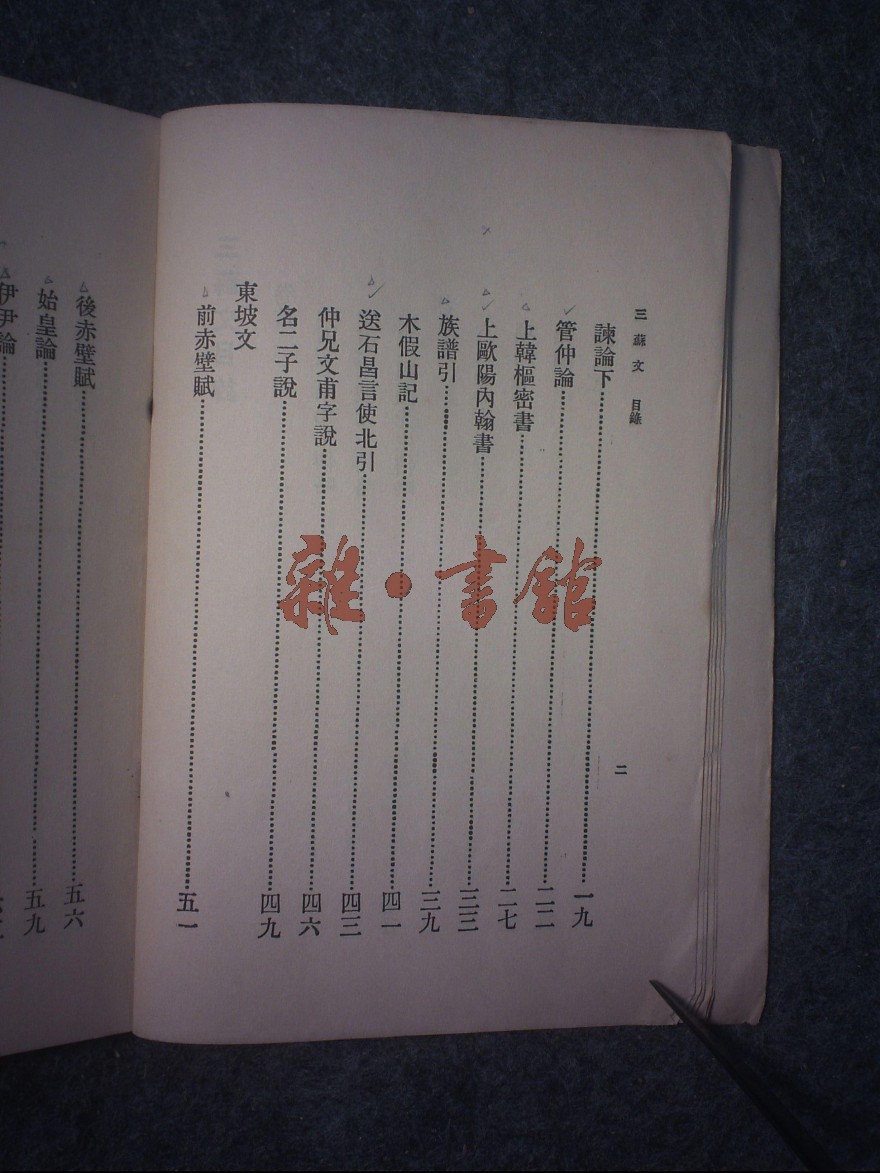 三蘇文 目錄 二
諫論下 一九
管仲論 二二
上韓樞密書 二七
上歐陽內翰書 三三
族譜引 三九
木假山記 四一
送石昌言使北引 四三
仲兄文甫字說 四六
名二子說 四九
東坡文
前赤壁賦 五一
後赤壁賦 五六
始皇論 五九
伊尹論
雜·書館